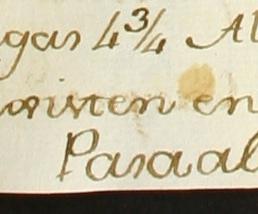 gas 4¾ Al
onsisten en
Para al